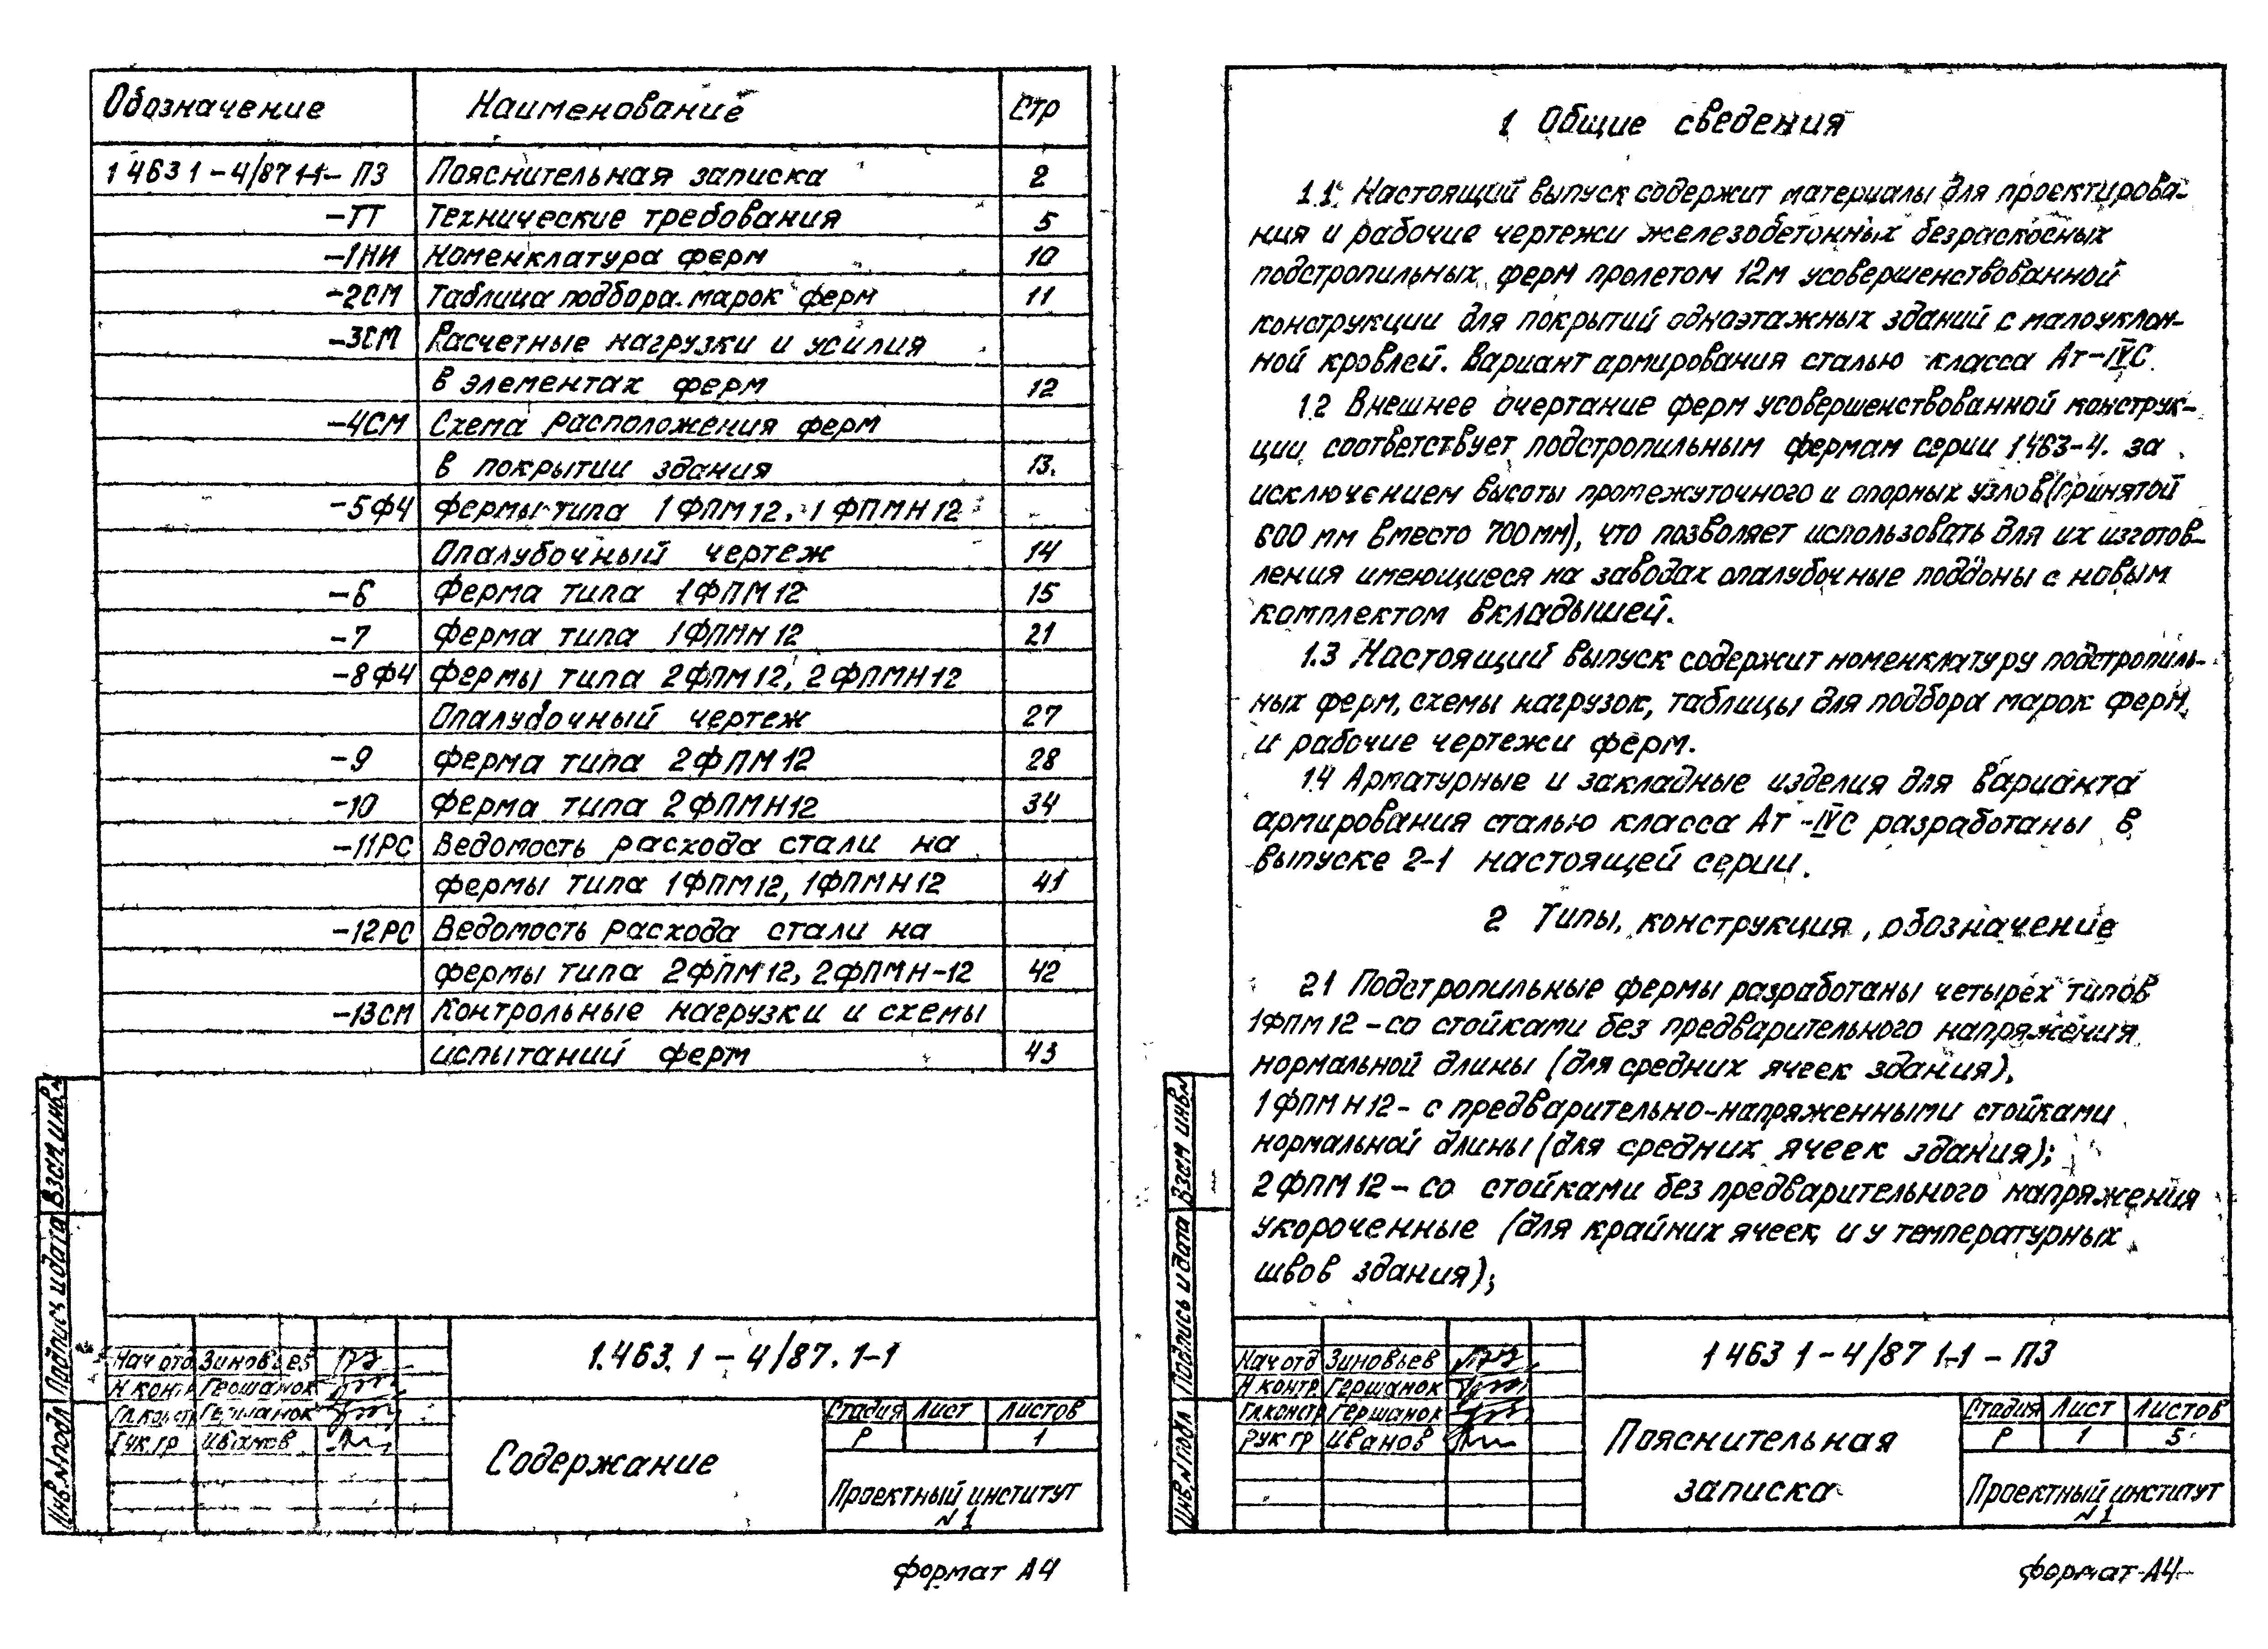 Обозначение Наименование Стр
1 463 1-4/87 1-1- ПЗ Пояснительная записка 2
-ТТ Технические требования 5
-1НИ Номенклатура ферм 10
-2СМ Таблица подбора марок ферм 11
-3СМ Расчетные нагрузки и усилия
в элементах ферм 12
-4СМ Схема расположения ферм
в покрытии здания 13.
-5Ф4 Фермы типа 1ФПМ12, 1ФПМН12
Опалубочный чертеж 14
-6 Ферма типа 1ФПМ12 15
-7 Ферма типа 1ФПМН12 21
-8Ф4 Фермы типа 2ФПМ12, 2ФПМН12
Опалубочный чертеж 27
-9 Ферма типа 2ФПМ12 28
-10 Ферма типа 2ФПМН12 34
-11РС Ведомость расхода стали на
фермы типа 1ФПМ12, 1ФПМН12 41
-12РС Ведомость расхода стали на
фермы типа 2ФПМ12, 2ФПМН-12 42
-13СМ Контрольные нагрузки и схемы
испытаний ферм 43
Взам инв.№
Подпись и дата
Инв.№ подл
1.463.1-4/87.1-1
Нач отд Зиновьев
Н контр Гершанок
Гл.констр Гершанок
Рук.гр Иванов
Содержание
Стадия Лист Листов
Р 1
Проектный институт
№1
формат А4
1 Общие сведения
1.1. Настоящий выпуск содержит материалы для проектирова-
ния и рабочие чертежи железобетонных безраскосных
подстропильных ферм пролетом 12м усовершенствованной
конструкции для покрытий одноэтажных зданий с малоуклон-
ной кровлей. Вариант армирования сталью класса Ат-IVС.
1.2 Внешнее очертание ферм усовершенствованной конструк-
ции соответствует подстропильным фермам серии 1 463-4. за
исключением высоты промежуточного и опорных узлов (принятой
600 мм вместо 700мм), что позволяет использовать для их изготов-
ления имеющиеся на заводах опалубочные поддоны с новым
комплектом вкладышей.
1.3 Настоящий выпуск содержит номенклатуру подстропиль-
ных ферм, схемы нагрузок, таблицы для подбора марок ферм,
и рабочие чертежи ферм.
1.4 Арматурные и закладные изделия для варианта
армирования сталью класса Ат-IVС разработаны в
выпуске 2-1 настоящей серии.
2 Типы, конструкция, обозначение
2.1 Подстропильные фермы разработаны четырех типов
1ФПМ12-со стойками без предварительного напряжения
нормальной длины (для средних ячеек здания),
1ФПМН12- с предварительно-напряженными стойками
нормальной длины (для средних ячеек здания);
2ФПМ12- со стойками без предварительного напряжения
укороченные (для крайних ячеек и у температурных
швов здания);
Взам инв.№
Подпись и дата
Инв.№ подл
1 463 1-4/87 1-1 - ПЗ
Нач отд Зиновьев
Н контр. Гершанок
Гл.констр Гершанок
Рук гр Иванов
Пояснительная
записка
Стадия Лист Листов
Р 1 5
Проектный институт
№1
формат А4